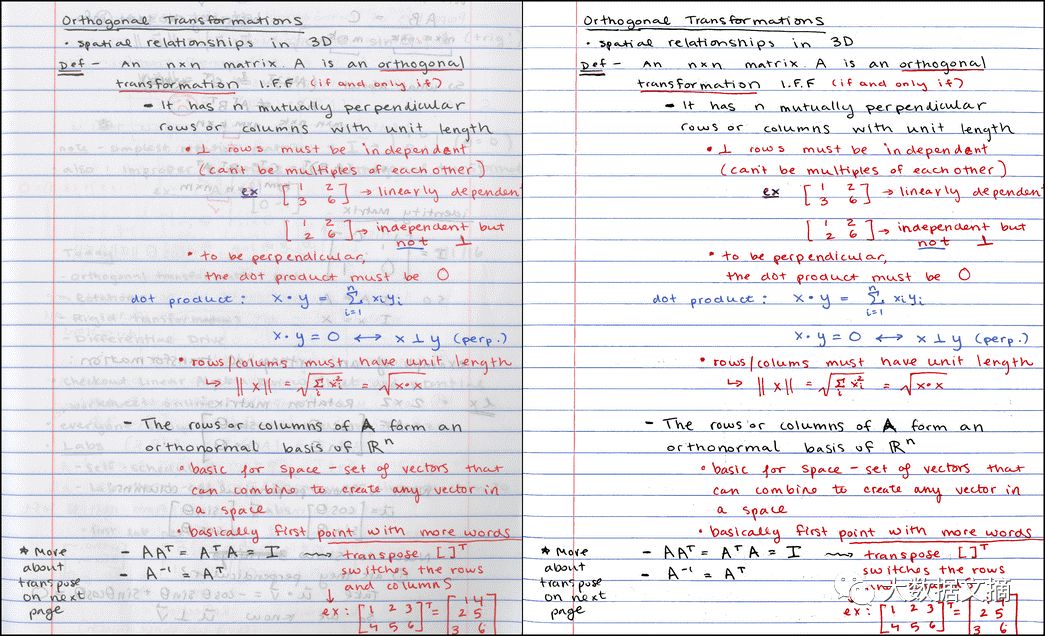 Orthogonal Transformations
• spatial relationships in 3D
Def - An n×n matrix A is an orthogonal
transformation I.F.F (if and only if)
- It has n mutually perpendicular
rows or columns with unit length
• ⊥ rows must be independent
(can't be multiples of each other)
ex [1 2 3 6] → linearly dependent
[1 2 2 6] → independent but
not ⊥
• to be perpendicular,
the dot product must be 0
dot product: x • y = n Σ i=1 xiyi
x • y = 0 ↔ x ⊥ y (perp.)
• rows/colums must have unit length
↳ ||x|| = √Σi xi² = √x•x
- The rows or columns of A form an
orthonormal basis of ℝⁿ
• basic for space - set of vectors that
can combine to create any vector in
a space
• basically first point with more words
* More
about
transpose
on next
page
- AAᵀ = AᵀA = I ⟿ transpose [ ]ᵀ
- A⁻¹ = Aᵀ
switches the rows
and columns
ex: [1 2 3 4 5 6]ᵀ = [1 4 2 5 3 6]
Orthogonal Transformations
• spatial relationships in 3D
Def - An n×n matrix A is an orthogonal
transformation I.F.F (if and only if)
- It has n mutually perpendicular
rows or columns with unit length
• ⊥ rows must be independent
(can't be multiples of each other)
ex [1 2 3 6] → linearly dependent
[1 2 2 6] → independent but
not ⊥
• to be perpendicular,
the dot product must be 0
dot product: x • y = n Σ i=1 xiyi
x • y = 0 ↔ x ⊥ y (perp.)
• rows/colums must have unit length
↳ ||x|| = √Σi xi² = √x•x
- The rows or columns of A form an
orthonormal basis of ℝⁿ
• basic for space - set of vectors that
can combine to create any vector in
a space
• basically first point with more words
* More
about
transpose
on next
page
- AAᵀ = AᵀA = I ⟿ transpose [ ]ᵀ
- A⁻¹ = Aᵀ
switches the rows
ex: [1 2 3 4 5 6]ᵀ = [1 4 2 5 3 6]
大数据文摘